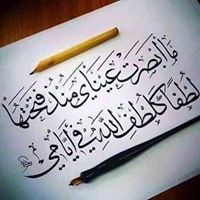 ما أبصرت عيناي منذ فتحتها
لطفا كلطف الله في أيامي